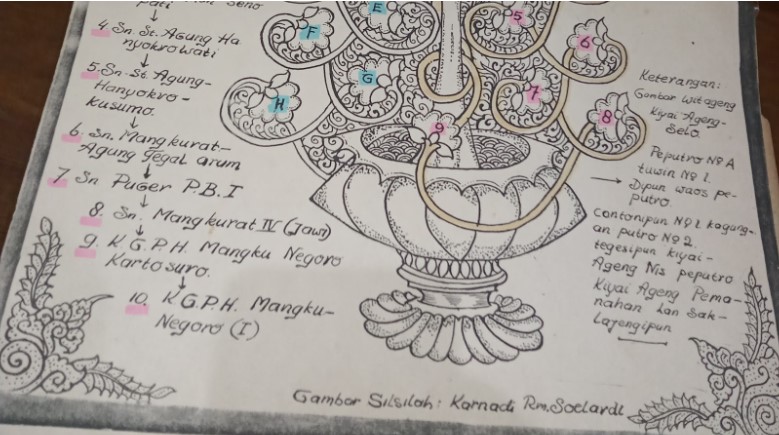 pati
4. Sn. St. Agung Ha
nyokrowati
5. Sn. St. Agung-
Hanyokro-
kusumo.
6. Sn. Mangkurat-
Agung Tegal arum
7. Sn Puger P.B.I
8. Sn. Mangkurat IV (Jawi)
9. K.G.P.H. Mangku Negoro
Kartosuro.
10. K.G.P.H. Mangku-
Negoro (I)
E
F
G
H
5
6
7
8
9
Keterangan:
Gambar wit ageng
Kyai Ageng-
Selo.
Peputro No A
tuwin No 1.
Dipun waos pe-
putro
Contonipun No 1 kagung-
an putro No 2.
tegesipun kiyai-
Ageng Nis peputro
Kiyai Ageng Pema-
nahan Lan Sak-
Lajengipun
Gambar Silsilah: Karnadi Rm. Soelardi